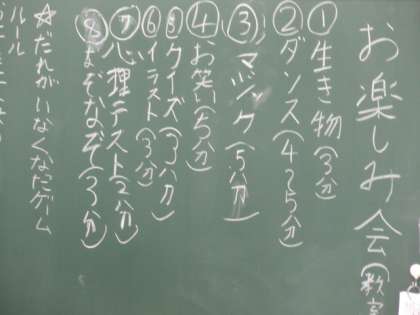 お楽しみ会(教室
①生き物(3分)
②ダンス(4〜5分)
③マジック(5分)
④お笑い(5分)
⑤クイズ(3分)
⑥イラスト(3分)
⑦心理テスト2分)
⑧なぞなぞ(3分)
☆だれがいなくなったゲーム
ルール